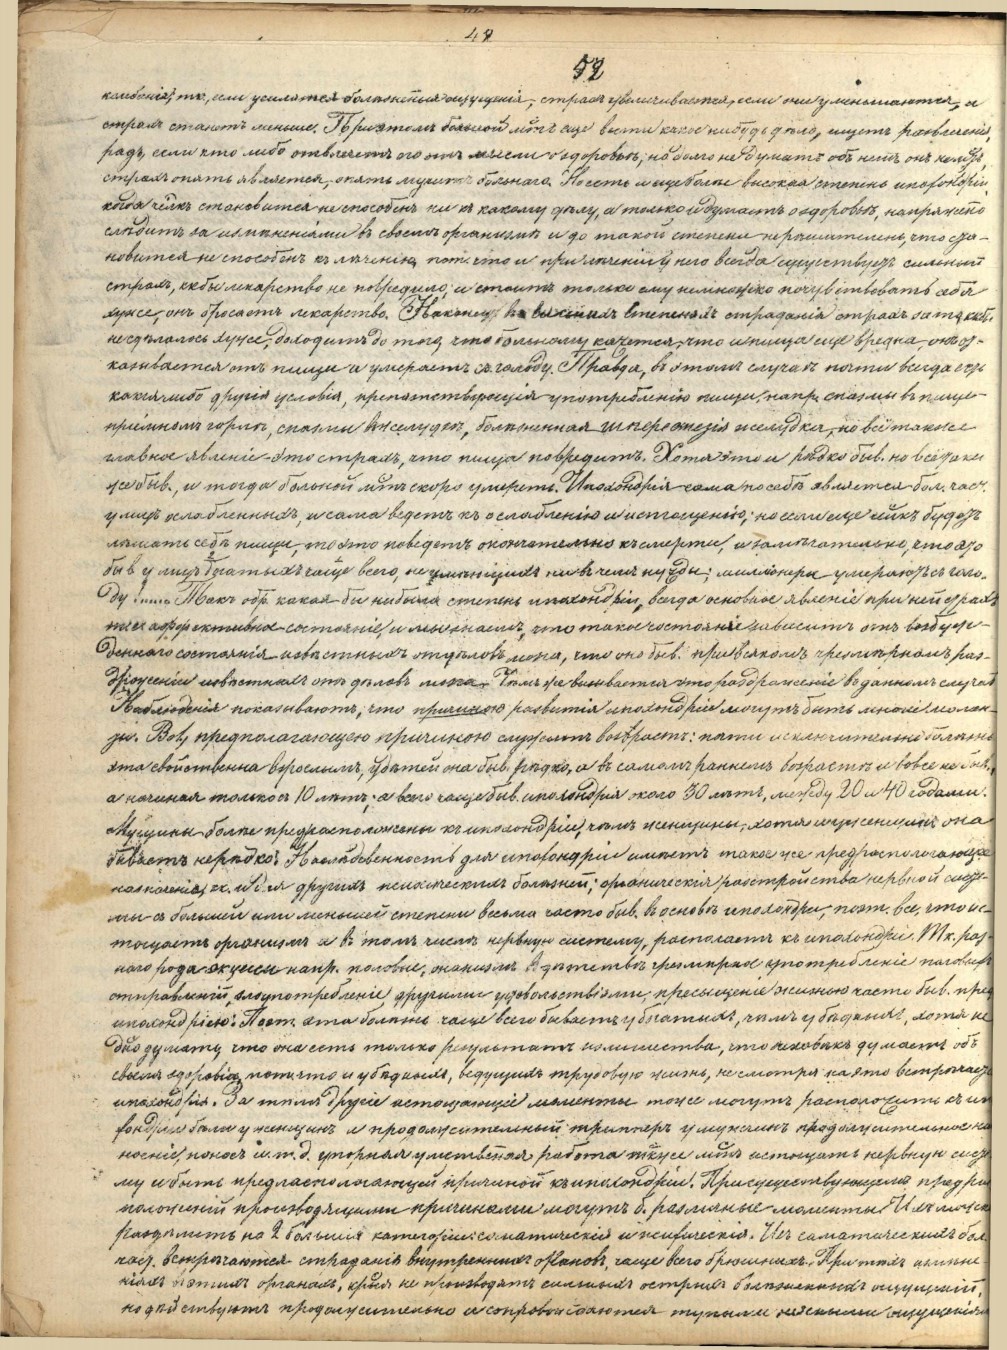 48
52
колебанія, т.е., если усилятся болѣзненныя ощущенія, страхъ увеличивается, если они уменьшаются, и
страхъ станетъ меньше. При этомъ больной м. еще вести какое нибудь дѣло, ищетъ развлеченія,
радъ, если кто либо отвлечетъ его отъ мысли о здоровьѣ, но долго не думать объ немъ онъ не можетъ,
страхъ опять является, опять мучитъ больнаго. Но есть и еще болѣе высокая степень ипохондріи,
когда челкъ становится не способенъ ни къ какому дѣлу, а только и думаетъ о здоровьѣ, напряженно
слѣдитъ за измѣненіями въ своемъ организмѣ и до такой степени нерѣшителенъ, что ста-
новится не способенъ къ лѣченію, пот. что и при лѣченіи у него всегда существуетъ сильный
страхъ, какъ бы лекарство не повредило, и стоитъ только ему немножко почувствовать себя
хуже, онъ бросаетъ лекарство. Наконецъ въ высшихъ степеняхъ страданія страхъ за то, какъ бы
не сдѣлалось хуже, доходитъ до того, что больному кажется, что и пища ему вредна, онъ от-
казывается отъ пищи и умираетъ съ голоду. Правда, въ этомъ случаѣ почти всегда есть
какія либо другія условія, препятствующія употребленію пищи, напр. спазмы въ пище-
пріемномъ горлѣ, спазмы желудка, болѣзненная гиперестезія желудка, но всё также
главное явленіе - это страхъ, что пища повредитъ. Хотя это и рѣдко быв. но всё таки
же быв., и тогда больной м. скоро умереть. Ипохондрія сама по себѣ является бол. част.
у лицъ ослабленныхъ, и сама ведетъ къ ослабленію и истощенію; но если еще челкъ будетъ
лишать себя пищи, то это поведетъ окончательно къ смерти, и замѣчательно, что это
быв. у лицъ богатыхъ чаще всего, не имѣющихъ ни въ чемъ нужды; милліонеры умираютъ съ голо-
ду!.... Такъ обр. какая бы ни была степень ипохондріи, всегда основное явленіе при ней страхъ,
т.е. аффективное состояніе, и мы знаемъ, что такое состояніе зависитъ отъ возбуж-
деннаго состоянія извѣстныхъ отдѣловъ мозга, что оно быв. при всякомъ чрезмѣрномъ раз-
драженіи извѣстныхъ отдѣловъ мозга. Чѣмъ же вызывается это раздраженіе въ данномъ случаѣ?
Наблюденія показываютъ, что причиною развитія ипохондріи могутъ быть многіе момен-
ты. Во1, предполагающею причиною служитъ возрастъ: почти исключительно болѣзнь
эта свойственна взрослымъ, у дѣтей она быв. рѣдко, а въ самомъ раннемъ возрастѣ и вовсе не быв.,
а начиная только съ 10 лѣтъ; а всего чаще быв. ипохондрія около 30 лѣтъ, между 20 и 40 годами.
Мущины болѣе предрасположены къ ипохондріи, чѣмъ женщины, хотя и у женщинъ она
бываетъ нерѣдко. Наслѣдственность для ипохондріи имѣетъ такое же предрасполагающее
значеніе, к. и для другихъ психическихъ болѣзней; органическія разстройства нервной систе-
мы въ большей или меньшей степени весьма часто быв. въ основѣ ипохондріи, поэт. все, что ис-
тощаетъ организмъ а въ томъ числѣ нервную систему, располагаетъ къ ипохондріи. Тк. раз-
наго рода эксцессы напр. половые, онанизмъ въ дѣтствѣ, чрезмѣрное употребленіе половыхъ
отправленій, злоупотребленіе другими удовольствіями, пресыщеніе жизнію часто быв. пред
ипохондріею. Поэт. эта болѣзнь чаще всего бываетъ у богатыхъ, чѣмъ у бѣдныхъ, хотя не
надо думать, что она есть только результатъ излишества, что человѣкъ думаетъ объ
своемъ здоровьѣ, пот. что и у бѣдныхъ, ведущихъ трудовую жизнь, не смотря на это встрѣчается
ипохондрія. За тѣмъ другіе истощающіе моменты тоже могутъ расположить къ ипо-
хондріи: бѣли у женщинъ и продолжительный трипперъ у мужчинъ, продолжительное
ношеніе, поносъ и т. д. упорная умственная работа также м. истощать нервную систе-
му и быть предрасполагающей причиной къ ипохондріи. При существующемъ предрас-
положеніи производящими причинами могутъ б. различные моменты. Ихъ можно
раздѣлить на 2 большія категоріи: соматическія и психическія. Изъ соматическихъ бол.
част. встрѣчаются страданія внутреннихъ органовъ, чаще всего брюшныхъ. При тѣхъ измѣне-
ніяхъ въ этихъ органахъ, кѳрыя не производятъ сильныхъ острыхъ болѣзненныхъ ощущеній,
но дѣйствуютъ продолжительно и сопровождаются тупыми неясными ощущеніями